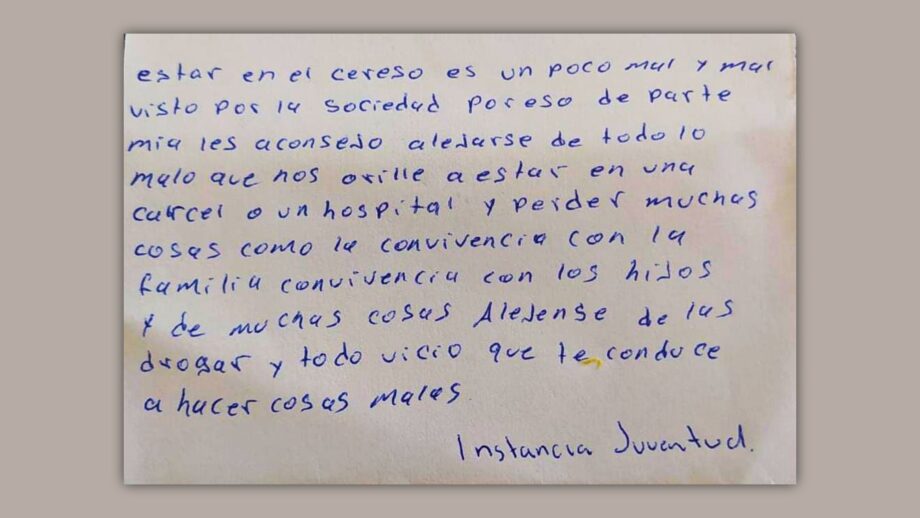 estar en el cereso es un poco mal y mal
visto por la sociedad por eso de parte
mia les aconsejo alejarse de todo lo
malo que nos orille a estar en una
carcel o un hospital y perder muchas
cosas como la convivencia con la
familia convivencia con los hijos
y de muchas cosas Alejense de las
drogar y todo vicio que te conduce
a hacer cosas malas.
Instancia Juventud.